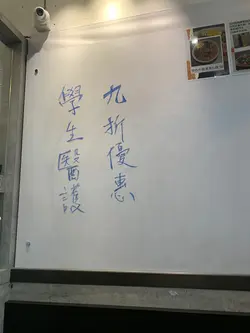 九折優惠
學生醫護